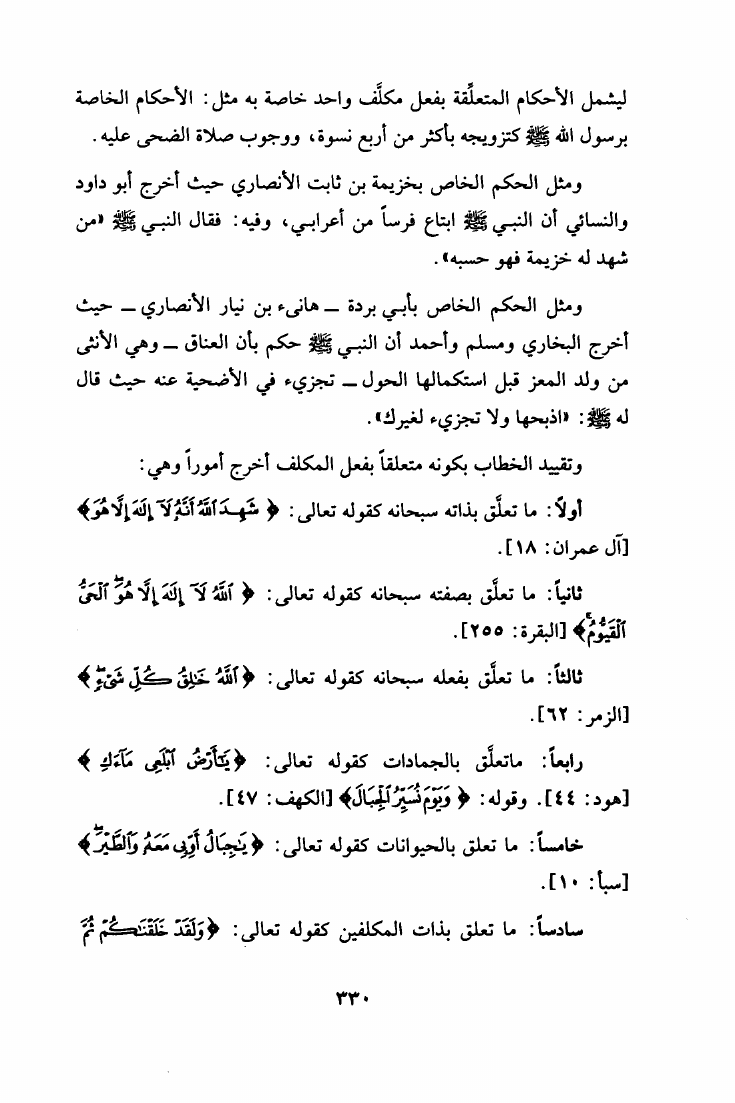 ليشمل الأحكام المتعلِّقة بفعل مكلَّف واحد خاصة به مثل: الأحكام الخاصة
برسول الله ﷺ كتزويجه بأكثر من أربع نسوة، ووجوب صلاة الضحى عليه.
ومثل الحكم الخاص بخزيمة بن ثابت الأنصاري حيث أخرج أبو داود
والنسائي أن النبـي ﷺ ابتاع فرساً من أعرابـي، وفيه: فقال النبـي ﷺ «من
شهد له خزيمة فهو حسبه».
ومثل الحكم الخاص بأبـي بردة ــ هانىء بن نيار الأنصاري ــ حيث
أخرج البخاري ومسلم وأحمد أن النبـي ﷺ حكم بأن العناق ــ وهي الأنثى
من ولد المعز قبل استكمالها الحول ــ تجزيء في الأضحية عنه حيث قال
له ﷺ: «اذبحها ولا تجزيء لغيرك».
وتقييد الخطاب بكونه متعلقاً بفعل المكلف أخرج أموراً وهي:
أولاً: ما تعلَّق بذاته سبحانه كقوله تعالى: ﴿ شَهِدَ ٱللَّهُ أَنَّهُۥ لَآ إِلَٰهَ إِلَّا هُوَ﴾
[آل عمران: ١٨].
ثانياً: ما تعلَّق بصفته سبحانه كقوله تعالى: ﴿ ٱللَّهُ لَآ إِلَٰهَ إِلَّا هُوَۖ ٱلْحَىُّ
ٱلْقَيُّومُۚ﴾ [البقرة: ٢٥٥].
ثالثاً: ما تعلَّق بفعله سبحانه كقوله تعالى: ﴿ٱللَّهُ خَٰلِقُ كُلِّ شَىْءٍۖ ﴾
[الزمر: ٦٢].
رابعاً: ماتعلَّق بالجمادات كقوله تعالى: ﴿يَٰٓأَرْضُ ٱبْلَعِى مَآءَكِ ﴾
[هود: ٤٤]. وقوله: ﴿ وَيَوْمَ نُسَيِّرُ ٱلْجِبَالَ﴾ [الكهف: ٤٧].
خامساً: ما تعلق بالحيوانات كقوله تعالى: ﴿يَٰجِبَالُ أَوِّبِى مَعَهُۥ وَٱلطَّيْرَۖ ﴾
[سبأ: ١٠].
سادساً: ما تعلق بذات المكلفين كقوله تعالى: ﴿وَلَقَدْ خَلَقْنَٰكُمْ ثُمَّ
٣٣٠